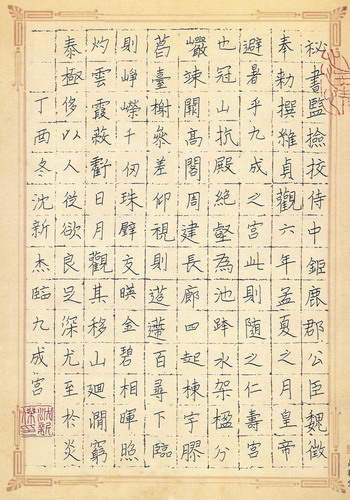 秘書監撿挍侍中鉅鹿郡公臣魏徵
奉勅撰維貞觀六年孟夏之月皇帝
避暑乎九成之宮此則隨之仁壽宮
也冠山抗殿絕壑為池跨水架楹分
巖竦闕高閣周建長廊四起棟宇膠
葛臺榭參差仰視則迢遰百尋下臨
則崢嶸千仞珠璧交暎金碧相暉照
灼雲霞蔽虧日月觀其移山廻澗窮
泰極侈以人從欲良足深尤至於炎
丁酉冬沈新杰臨九成宮